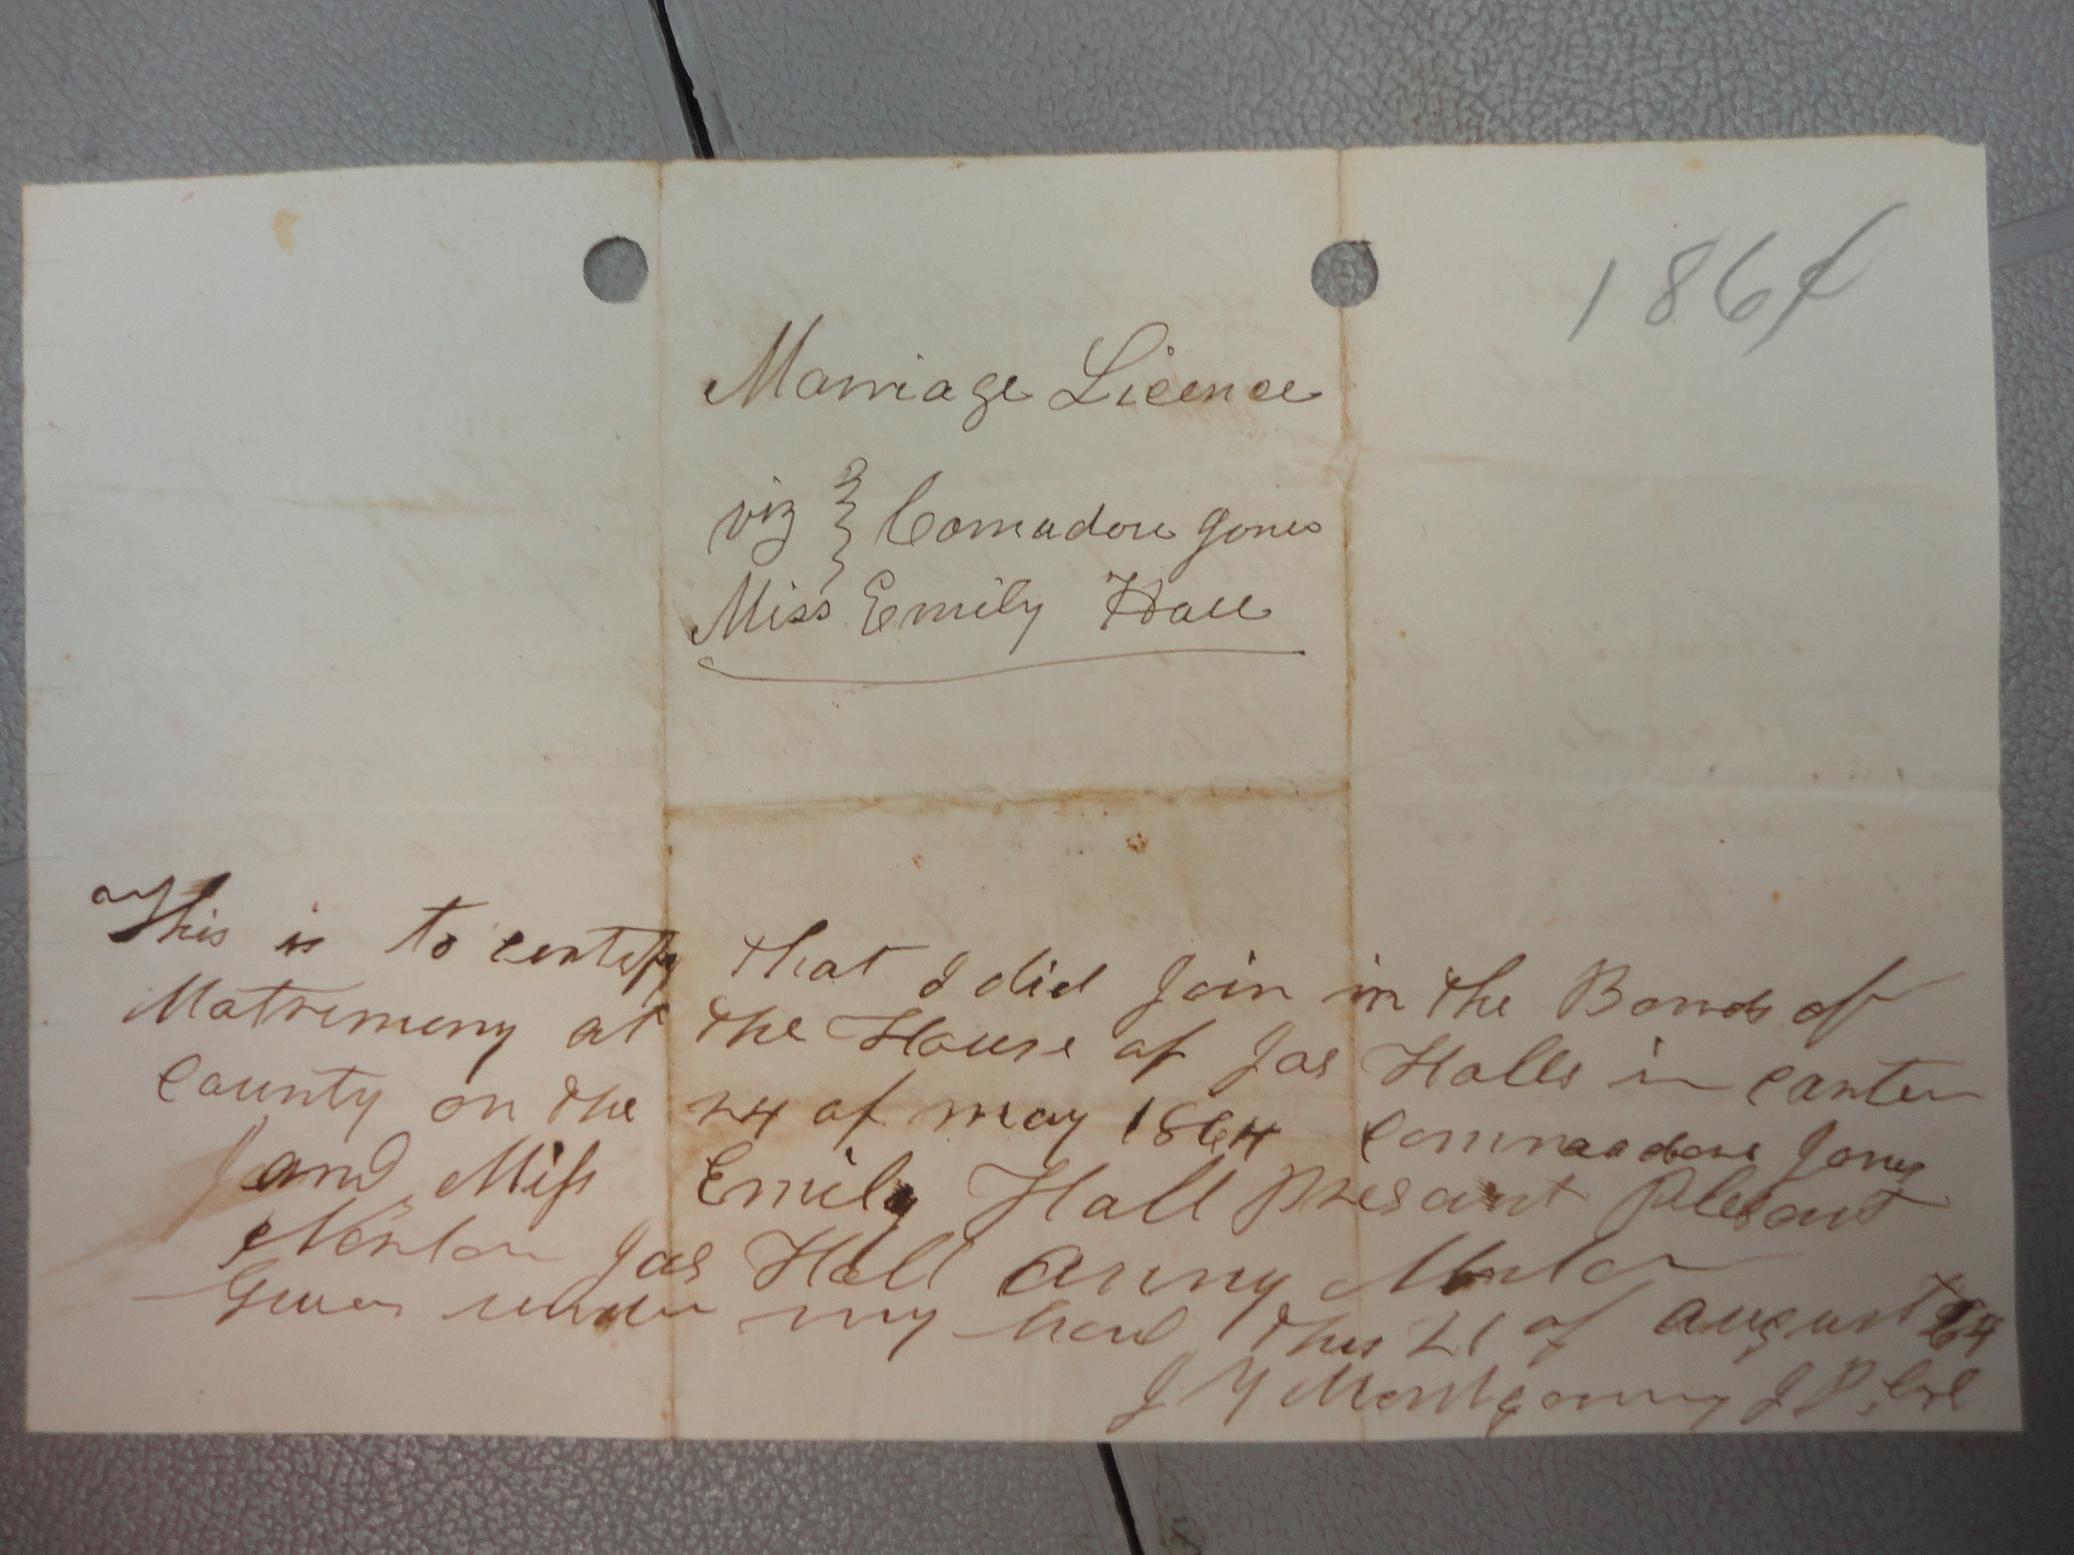 1864
Marriage Licence
viz Comadore Jones
Miss Emily Hall
This is to certify that I did Join in the Bonds of
Matrimony at the House of Jas Halls in Carter
County on the 24 of may 1864 Commadore Jones
and Miss Emily Hall Presant Plesant
Jas Hall Anny
Given under my hand this 21 of August 64
J Y Montgomery J P